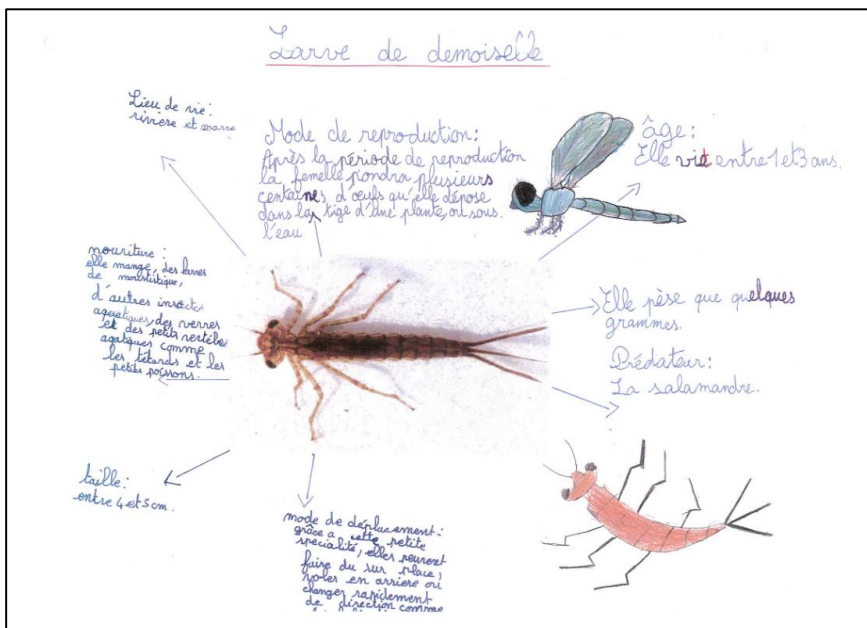 Larve de demoiselle
Lieu de vie:
rivière et marre
Mode de reproduction:
Après la période de reproduction
la femelle pondra plusieurs
centaines d'œufs qu'elle dépose
dans la tige d'une plante, ou sous
l'eau
âge:
Elle vit entre 1 et 3 ans.
nouriture:
elle mange, des larves
de moustistique,
d'autres insectes
aquatiques, des verres
et des petits vertébé
agatiques comme
les tétards et les
petits poissons.
Elle pèse que quelques
grammes.
Prédateur:
La salamandre.
taille:
entre 4 et 5 cm.
mode de déplacement:
grâce a cette petite
spécialité, elles peuvent
faire du sur place,
voler en arriere ou
changer rapidement
de direction comme